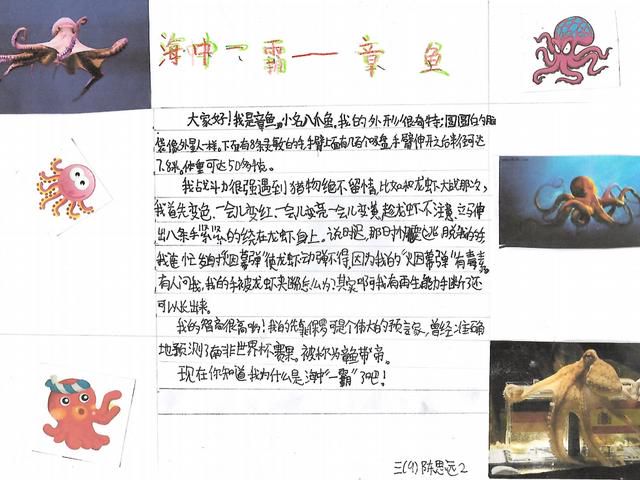 海中一霸——章鱼
大家好!我是章鱼,小名八爪鱼。我的外形很有特:圆圆的脑
袋像外星人一样。下面有8条柔软的手臂上面有几百个吸盘手臂伸开之后半径可达
米。体重可达50多
我战斗力很强遇到猎物绝不留情,比如和龙虾大战那次,
我首先变色,一会儿变红、一会儿变亮一会儿变黄,趁龙虾不注意,立马伸
出八条手紧紧的绕在龙虾身上。说时迟,那时快
我连忙"烟幕弹"使龙虾动弹不得,因为我的"烟幕弹"有毒素
有人问我,我的手被龙虾夹断怎么办?其实啊我有再生能力手断了还
可以长出来。
我的智商很高哟!我的先辈保罗可是个伟大的预言家,曾经准确
地预测了南非世界杯赛果。被称为章鱼帝。
现在你知道我为什么是海中"一霸"了吧!
三(9)陈思远2